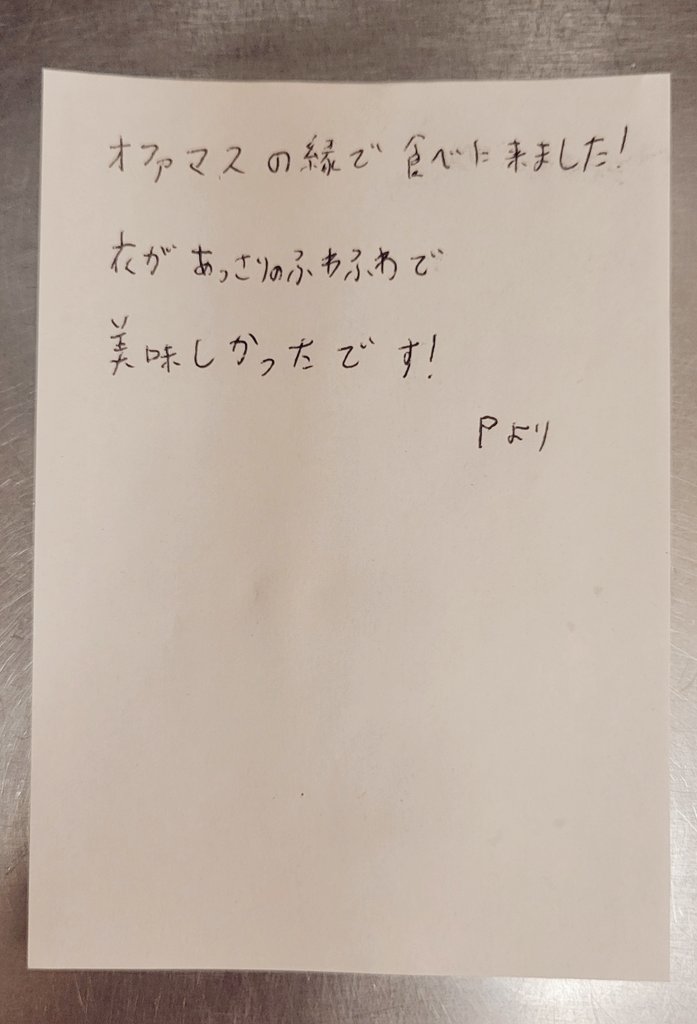 オファマスの縁で食べに来ました!
衣があっさりのふわふわで
美味しかったです!
Pより